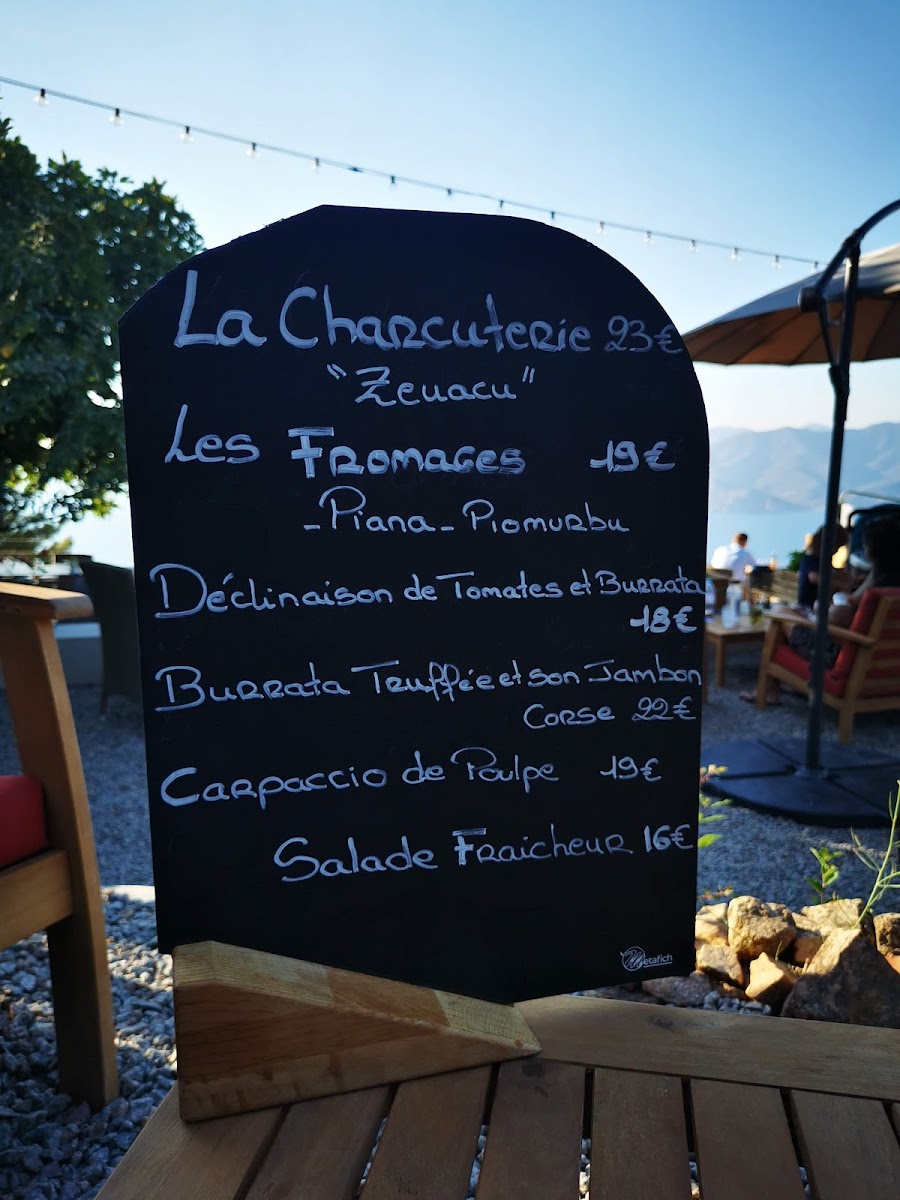 La Charcuterie 23€
"Zeuacu"
Les Fromages 19€
-Piana-Piomurbu
Déclinaison de Tomates et Burrata
18€
Burrata Truffée et son Jambon
Corse 22€
Carpaccio de Poulpe 19€
Salade Fraicheur 16€
Metafich